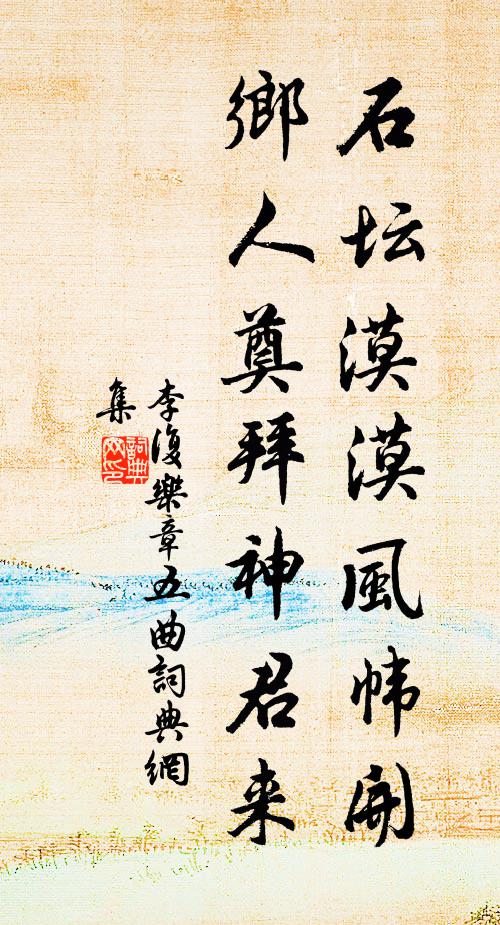 石坛漠漠風帏開
鄉人奠拜神君来
李復樂章五曲詞典網
集
詞典
网印